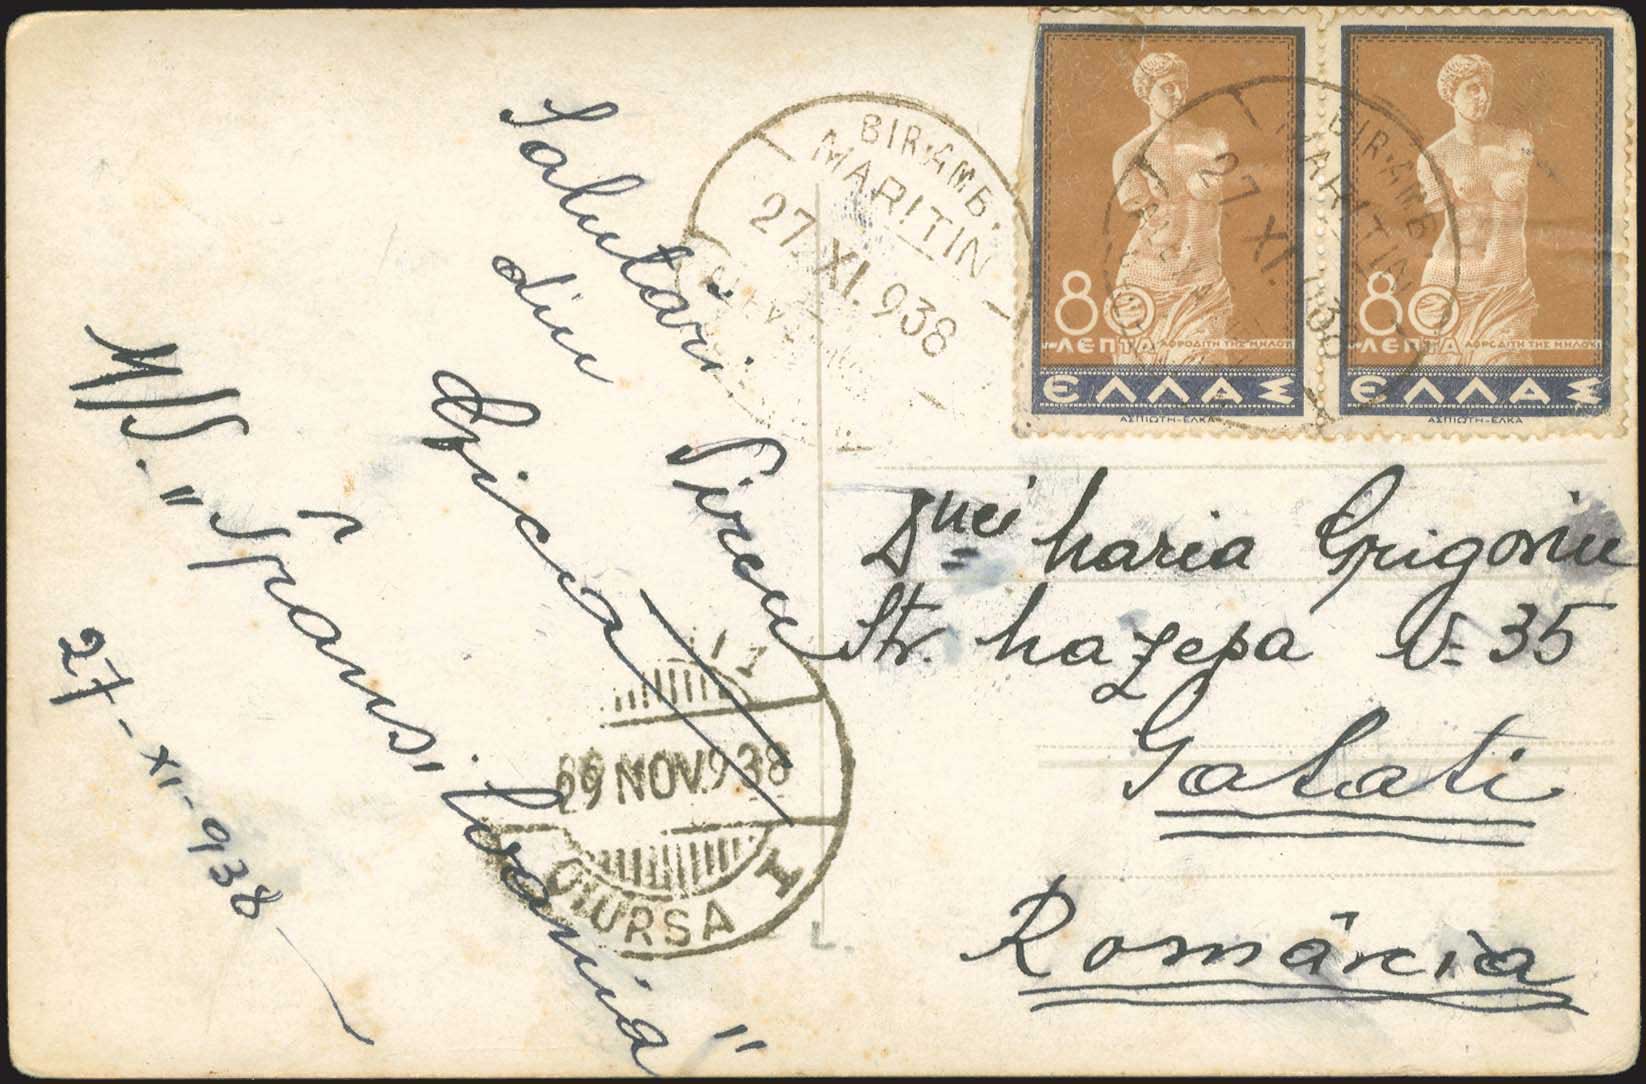 Salutări
din Pireu
Gicu
M/S. "Transilvania"
27-XI-938
BIR·AMB.
MARITIN
27.XI.938
BIR·AMB
MARITIN
27 XI.938
ALEXA
80
ΛΕΠΤΑ ΑΦΡΟΔΙΤΗ ΤΗΣ ΜΗΛΟΥ
ΕΛΛΑΣ
ΑΣΠΙΩΤΗ-ΕΛΚΑ
80
ΛΕΠΤΑ ΑΦΡΟΔΙΤΗ ΤΗΣ ΜΗΛΟΥ
ΕΛΛΑΣ
ΑΣΠΙΩΤΗ-ΕΛΚΑ
Dnei Maria Grigoriu
Str. Mazepa № 35
Galati
România
29 NOV.938
L.